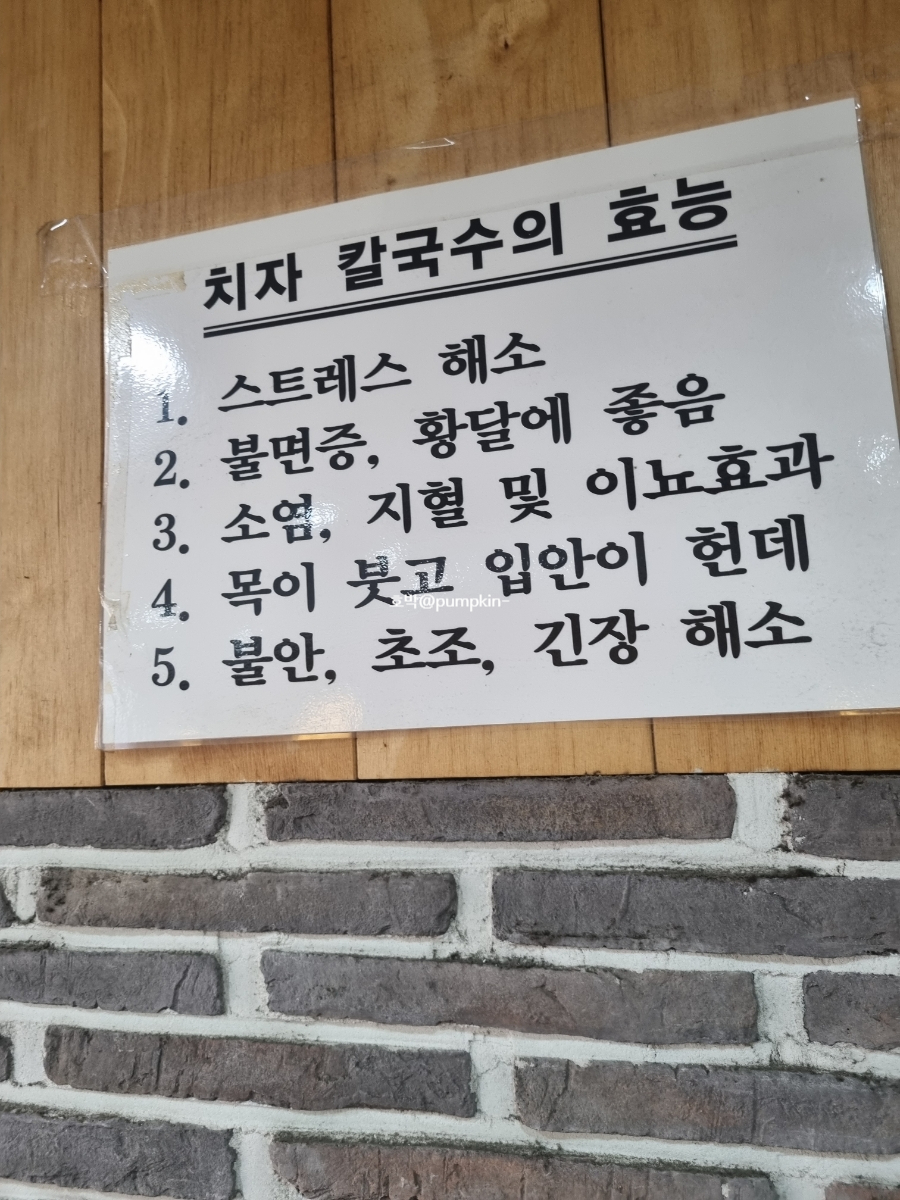 치자 칼국수의 효능
1. 스트레스 해소
2. 불면증, 황달에 좋음
3. 소염, 지혈 및 이뇨효과
4. 목이 붓고 입안이 헌데
호박@pumpkin~
5. 불안, 초조, 긴장 해소